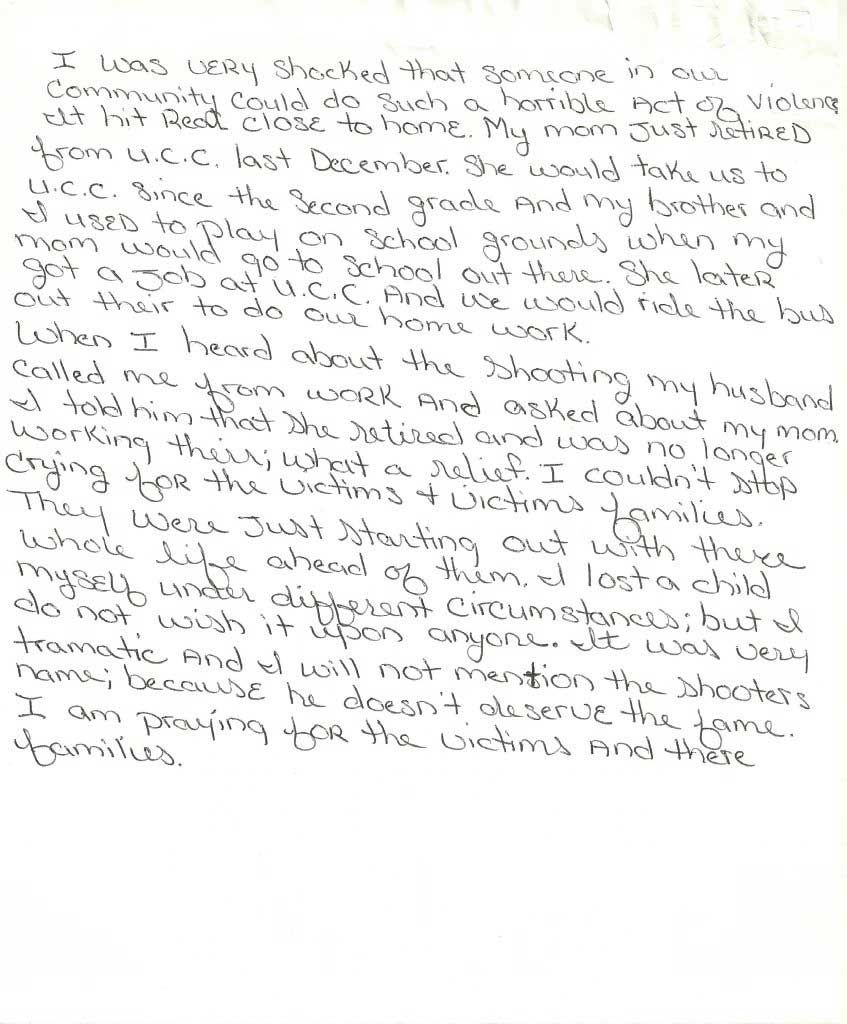 I was very shocked that someone in our
Community could do such a horrible Act of violence
It hit Real close to home. My mom just retired
from U.C.C. last December. She would take us to
U.C.C. since the second grade And my brother and
I used to play on school grounds when my
mom would go to school out there. She later
got a job at U.C.C. And we would ride the bus
out their to do our home work.
When I heard about the shooting my husband
called me from work And asked about my mom
I told him that she retired and was no longer
working their; what a relief. I couldn't stop
Crying for the victims & victims families.
They were just starting out with there
whole life ahead of them. I lost a child
myself under different circumstances; but I
do not wish it upon anyone. It was very
tramatic And I will not mention the shooters
name; because he doesn't deserve the fame.
I am praying for the victims And there
families.